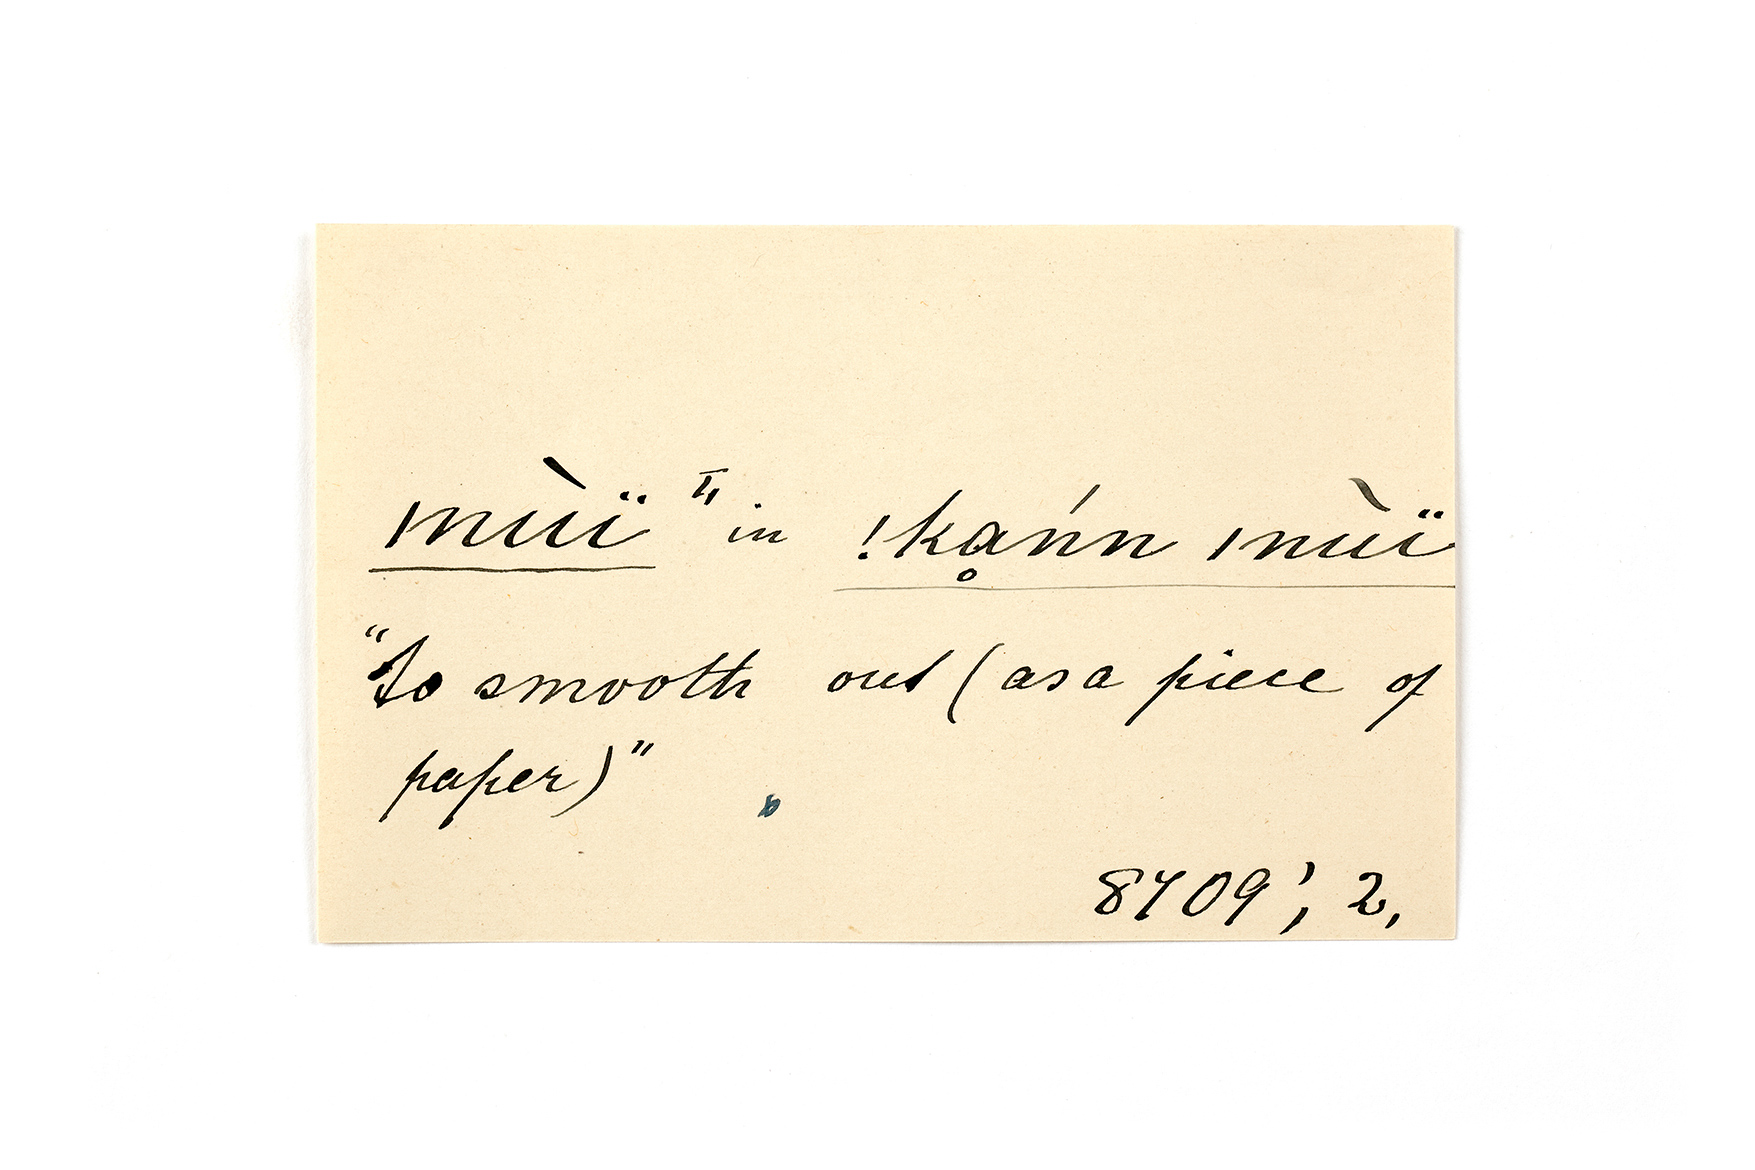 ǀnùï II in !kạ́nn ǀnùï
"to smooth out (as a piece of
paper)"
b
8709', 2,